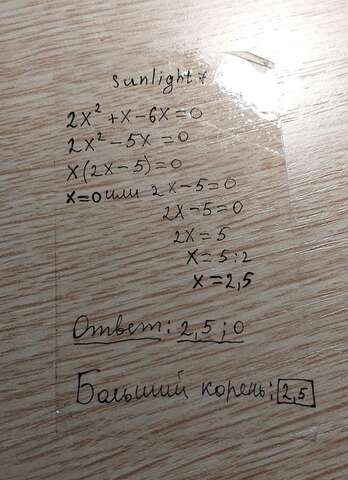 Sunlight *
2x² + x - 6x = 0
2x² - 5x = 0
x(2x - 5) = 0
x=0 или 2x - 5 = 0
2x - 5 = 0
2x = 5
x = 5 : 2
x = 2,5
Ответ: 2,5 ; 0
Больший корень: 2,5